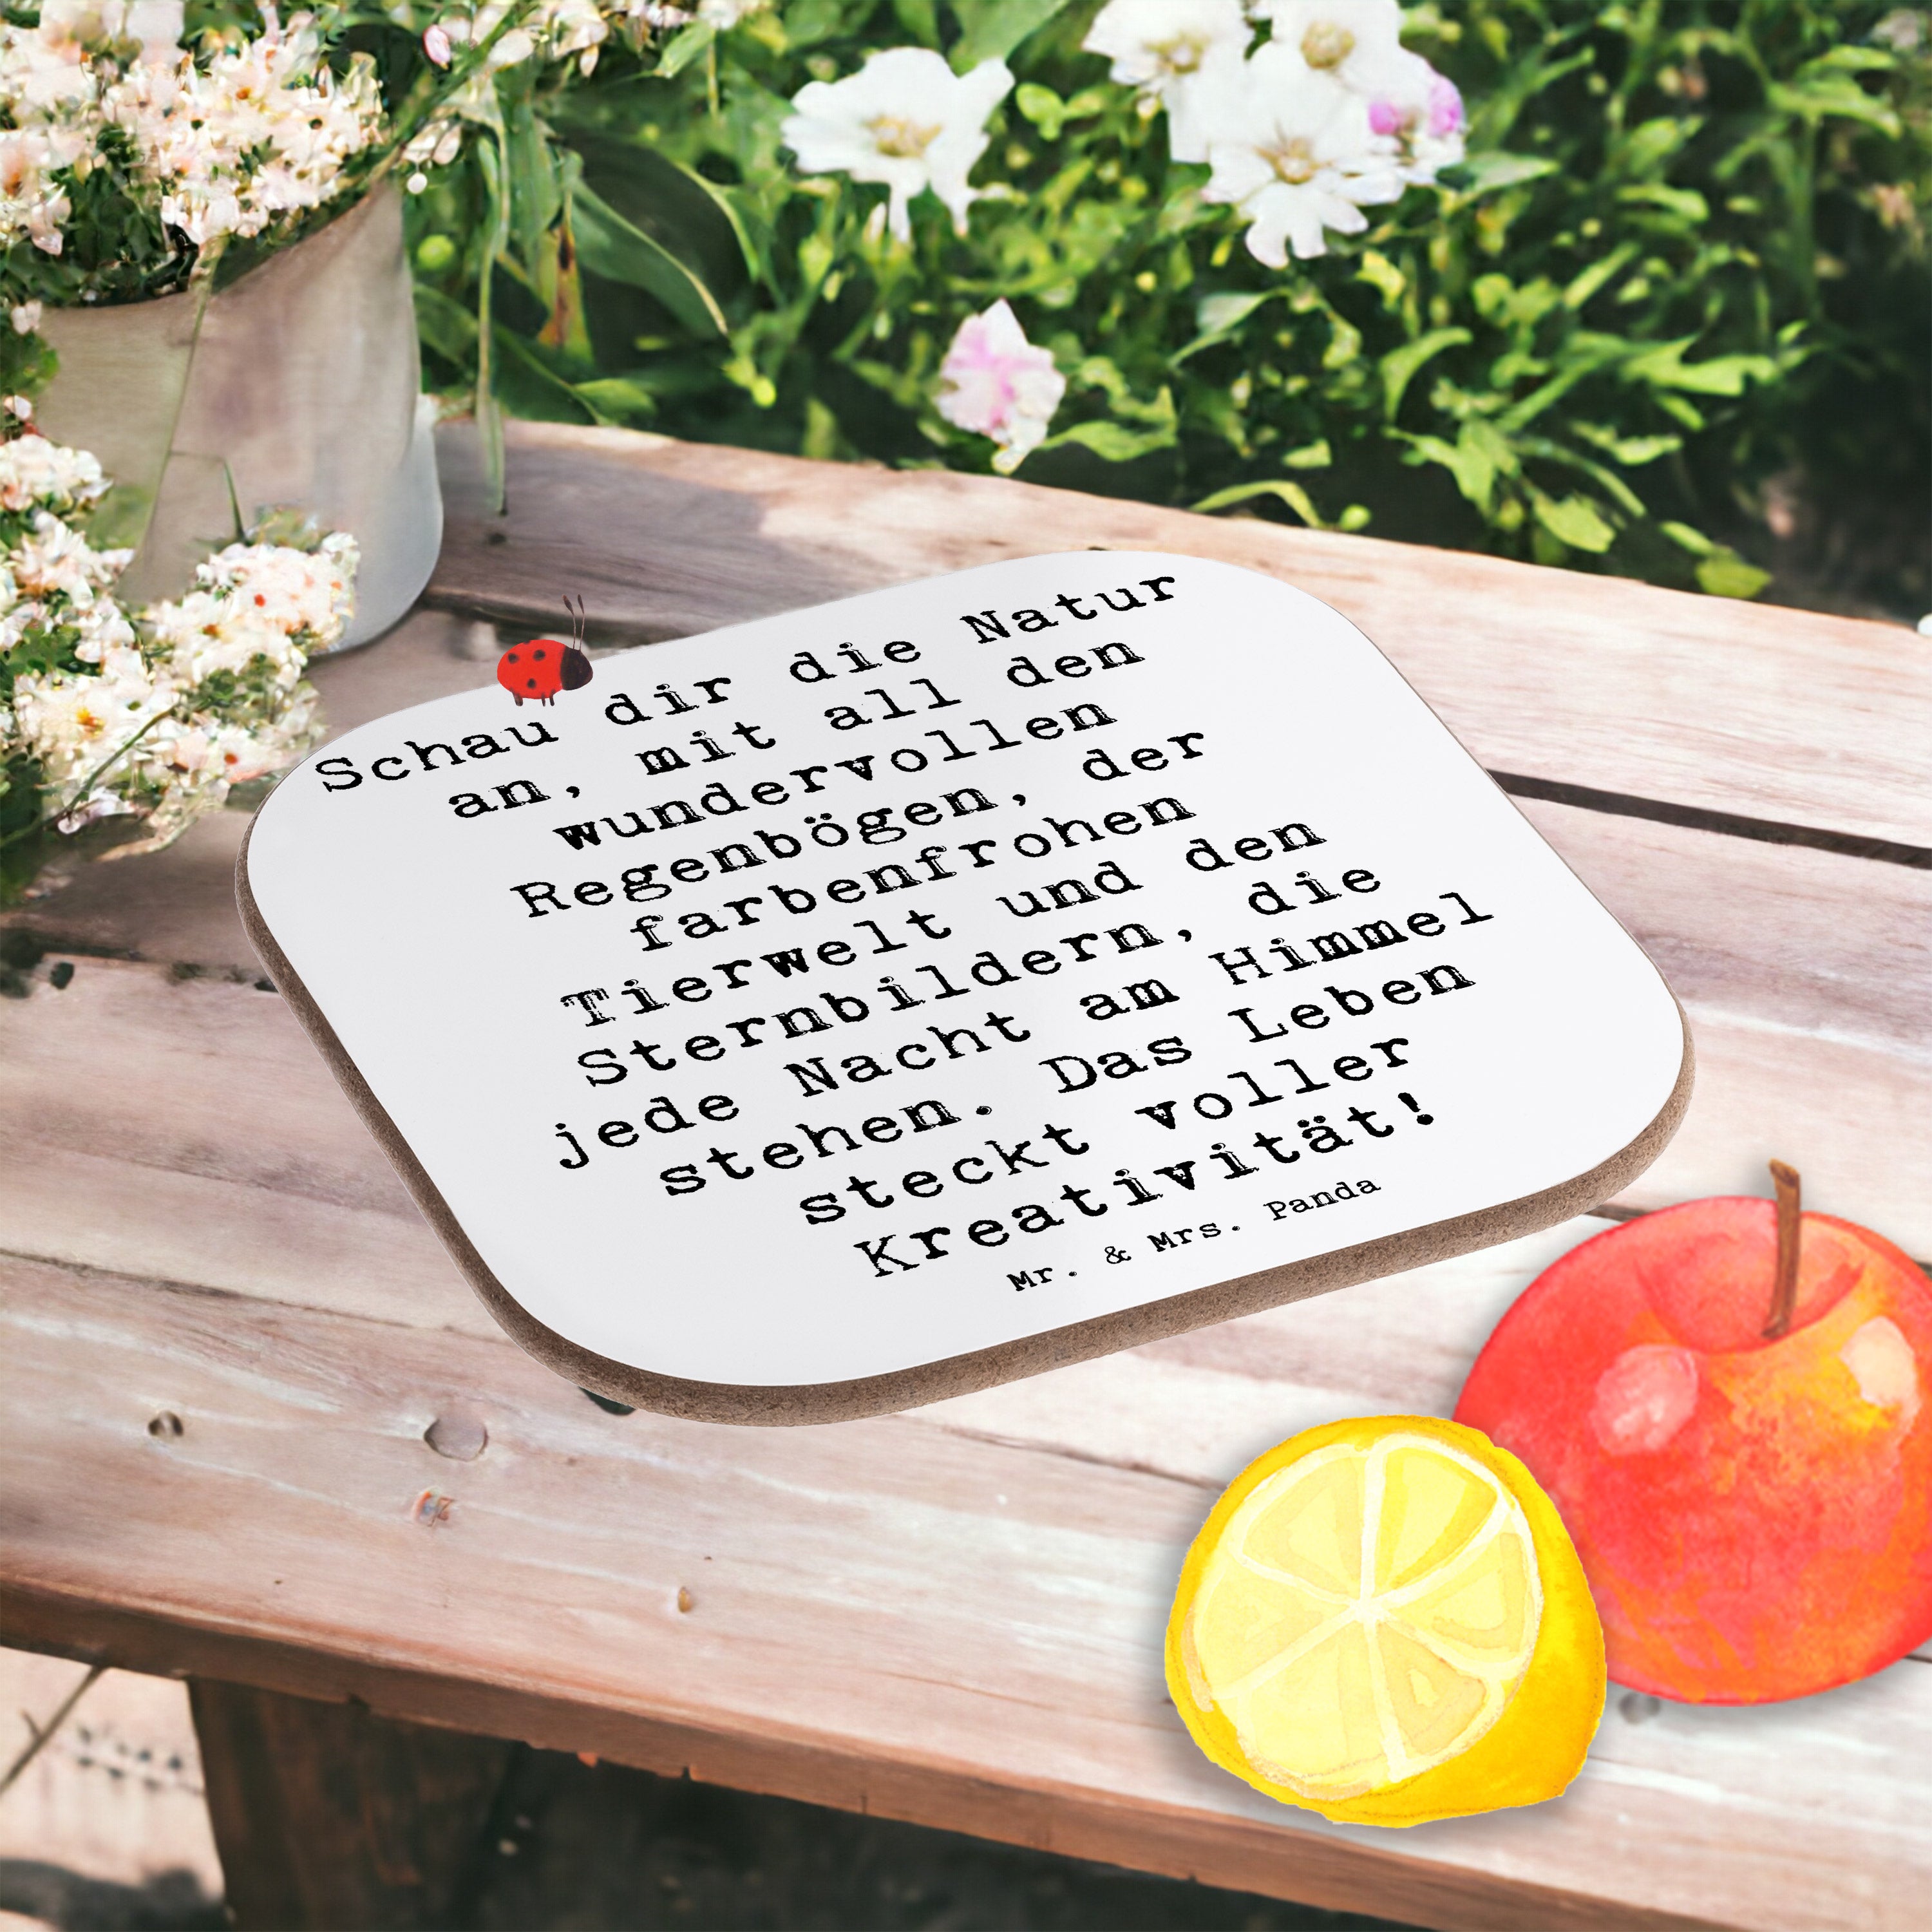 Schau dir die Natur
an, mit all den
wundervollen
Regenbögen, der
farbenfrohen
Tierwelt und den
Sternbildern, die
jede Nacht am Himmel
stehen. Das Leben
steckt voller
Kreativität!
Mr. & Mrs. Panda